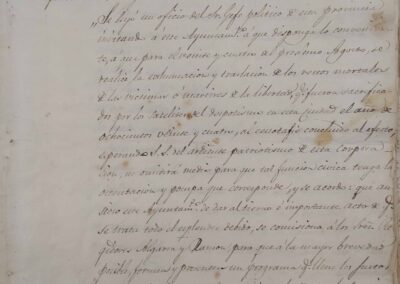 "Se leyó un oficio del Sr. Gefe politico de esta provincia
invitando á este Ayuntamto. á que disponga lo convenien-
te, á que para el veinte y cuatro del procsimo Agosto, se
realice la exhumacion y traslacion de los restos mortales
de las victimas ó martires de la libertad, q. fueron sacrifica-
dos por los satelites del despotismo en esta Ciudad el año de
ochocientos veinte y cuatro, al cenotafio construido al efecto,
esperando S. S. del ardiente patriotismo de esta Corpora
cion, no omitirá medio para que tal funcion civica tenga la
ostentacion y pompa que corresponde, y se acordó: que an
sioso este Ayuntamto. de dar al tierno é importante acto de q.
se trata todo el esplendor debido, se comisiona á los Sres. Re
gidores Algarra y Ramon, para que á la mayor brevedad
posible, formen y presenten un programa q. llene los